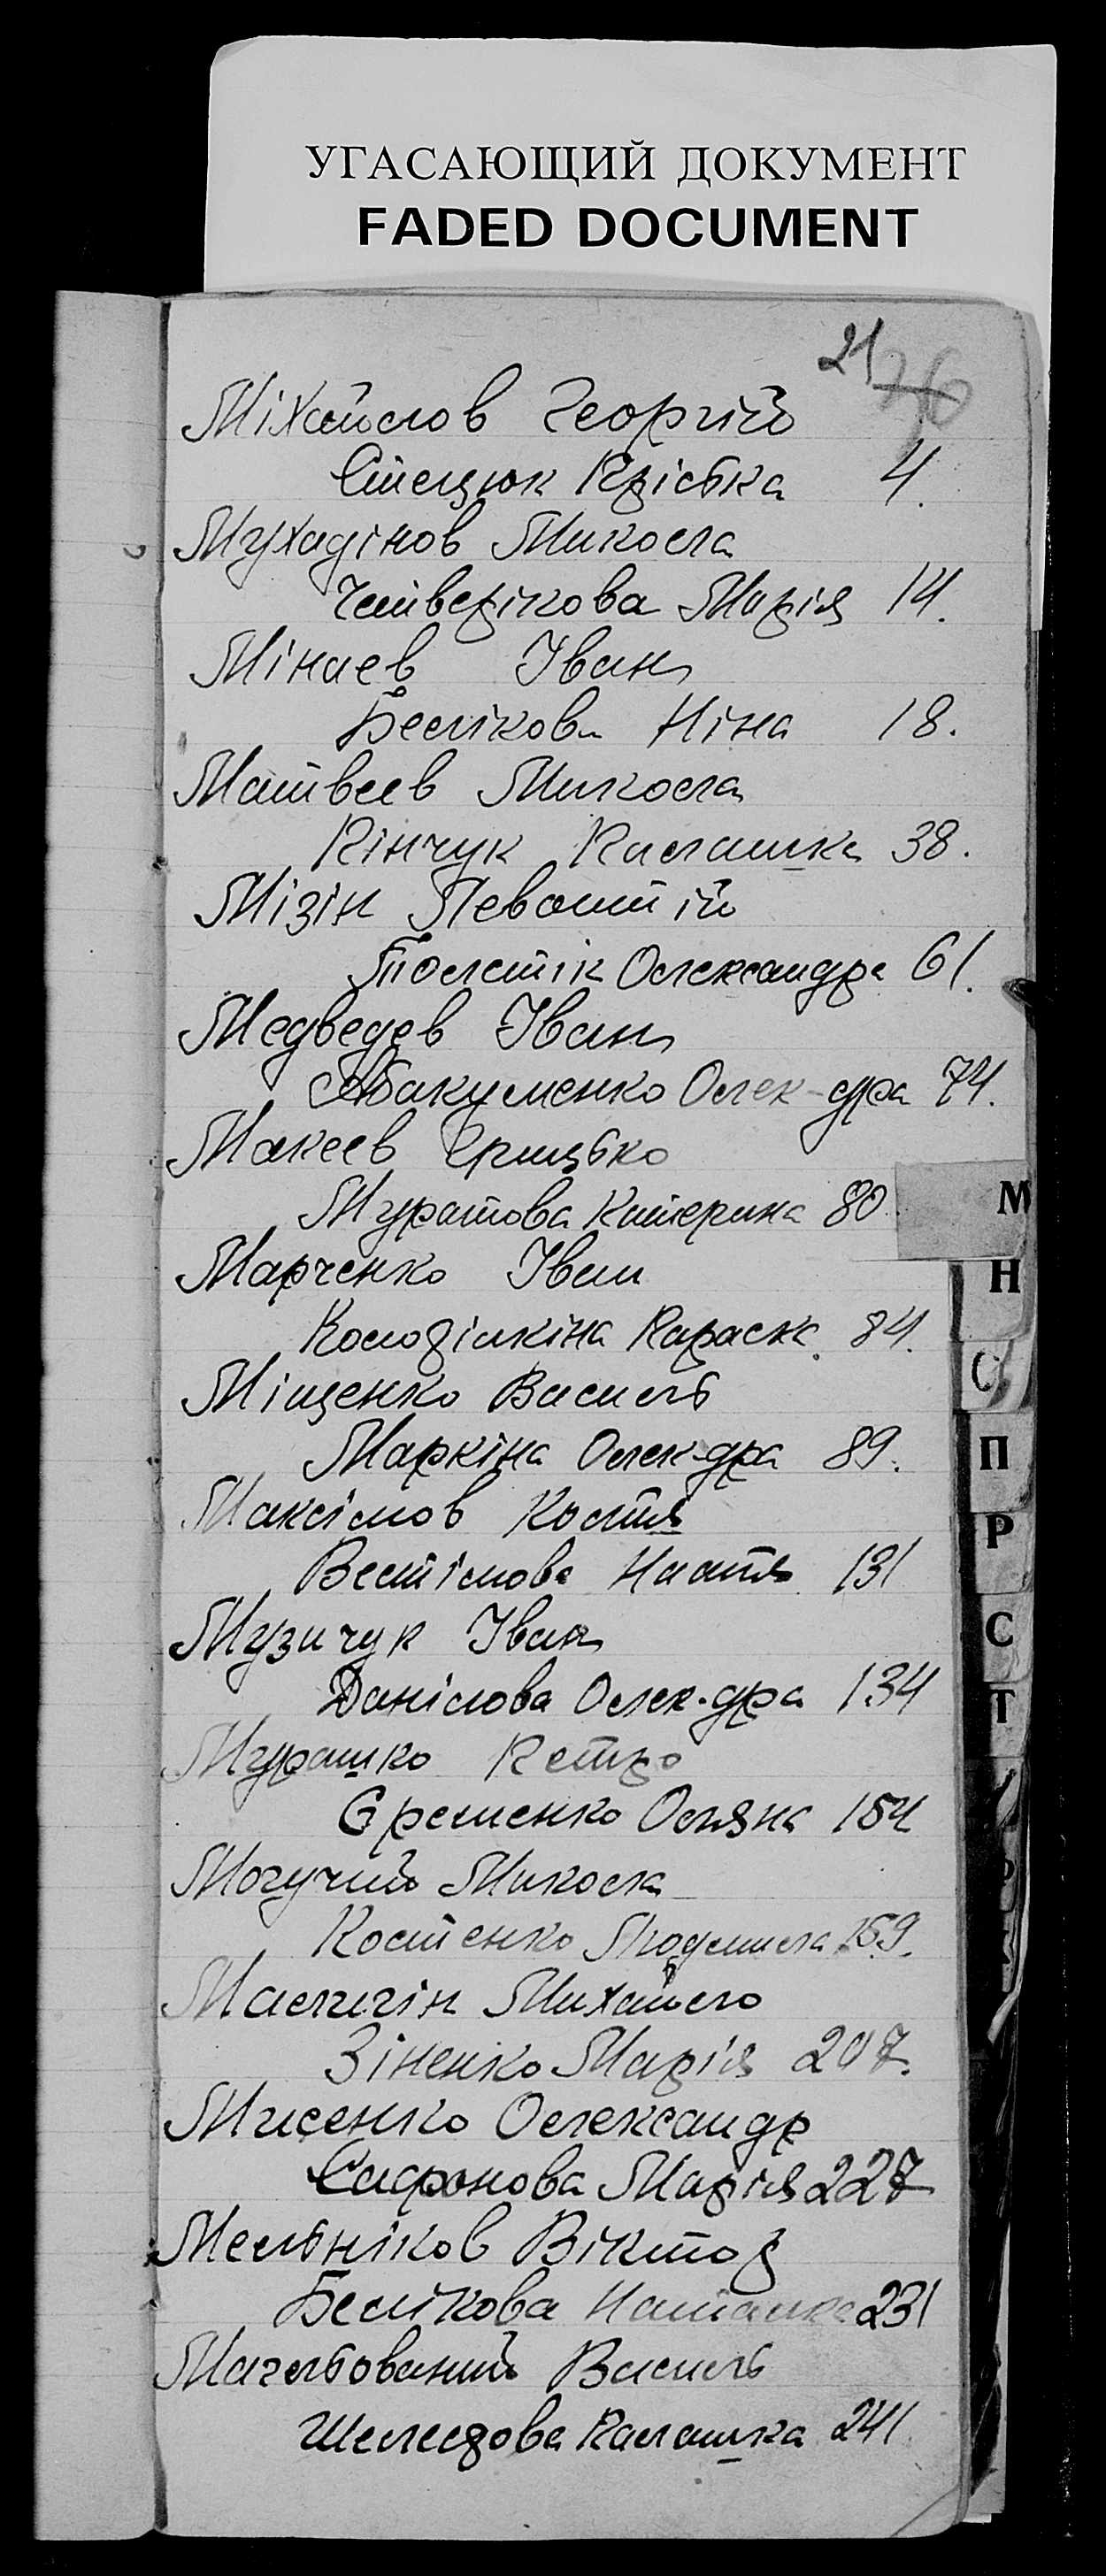 УГАСАЮЩИЙ ДОКУМЕНТ
FADED DOCUMENT
21 26
Міхайлов Георгій
Стецюк Крістка 4.
Мухадінов Микола
Четверікова Марія 14.
Мінаев Іван
Белікова Ніна 18.
Матвеев Микола
Кінчук Калашка 38.
Мізін Левонтій
Толстік Олександра 61.
Медведєв Іван
Абакуменко Олек-дра 74.
Макеев Грицько
Муратова Катерина 80.
Марченко Іван
Параска 84.
Міщенко Василь
Маркіна Олек-дра 89.
Максімов Костя
Настя 131
Музичук Іван
Данілова Олек-дра 134
Мурашко Петро
Єременко Оляна 154
Могучий Микола
Костенко Людмила 159.
Малигін Михайло
Зіненко Марія 207.
Мисенко Олександр
Сафонова Марія 227
Мельніков Віктор
Белікова Наталка 231
Магльований Василь
Шелудова Палашка 241.
М
Н
О
П
Р
С
Т